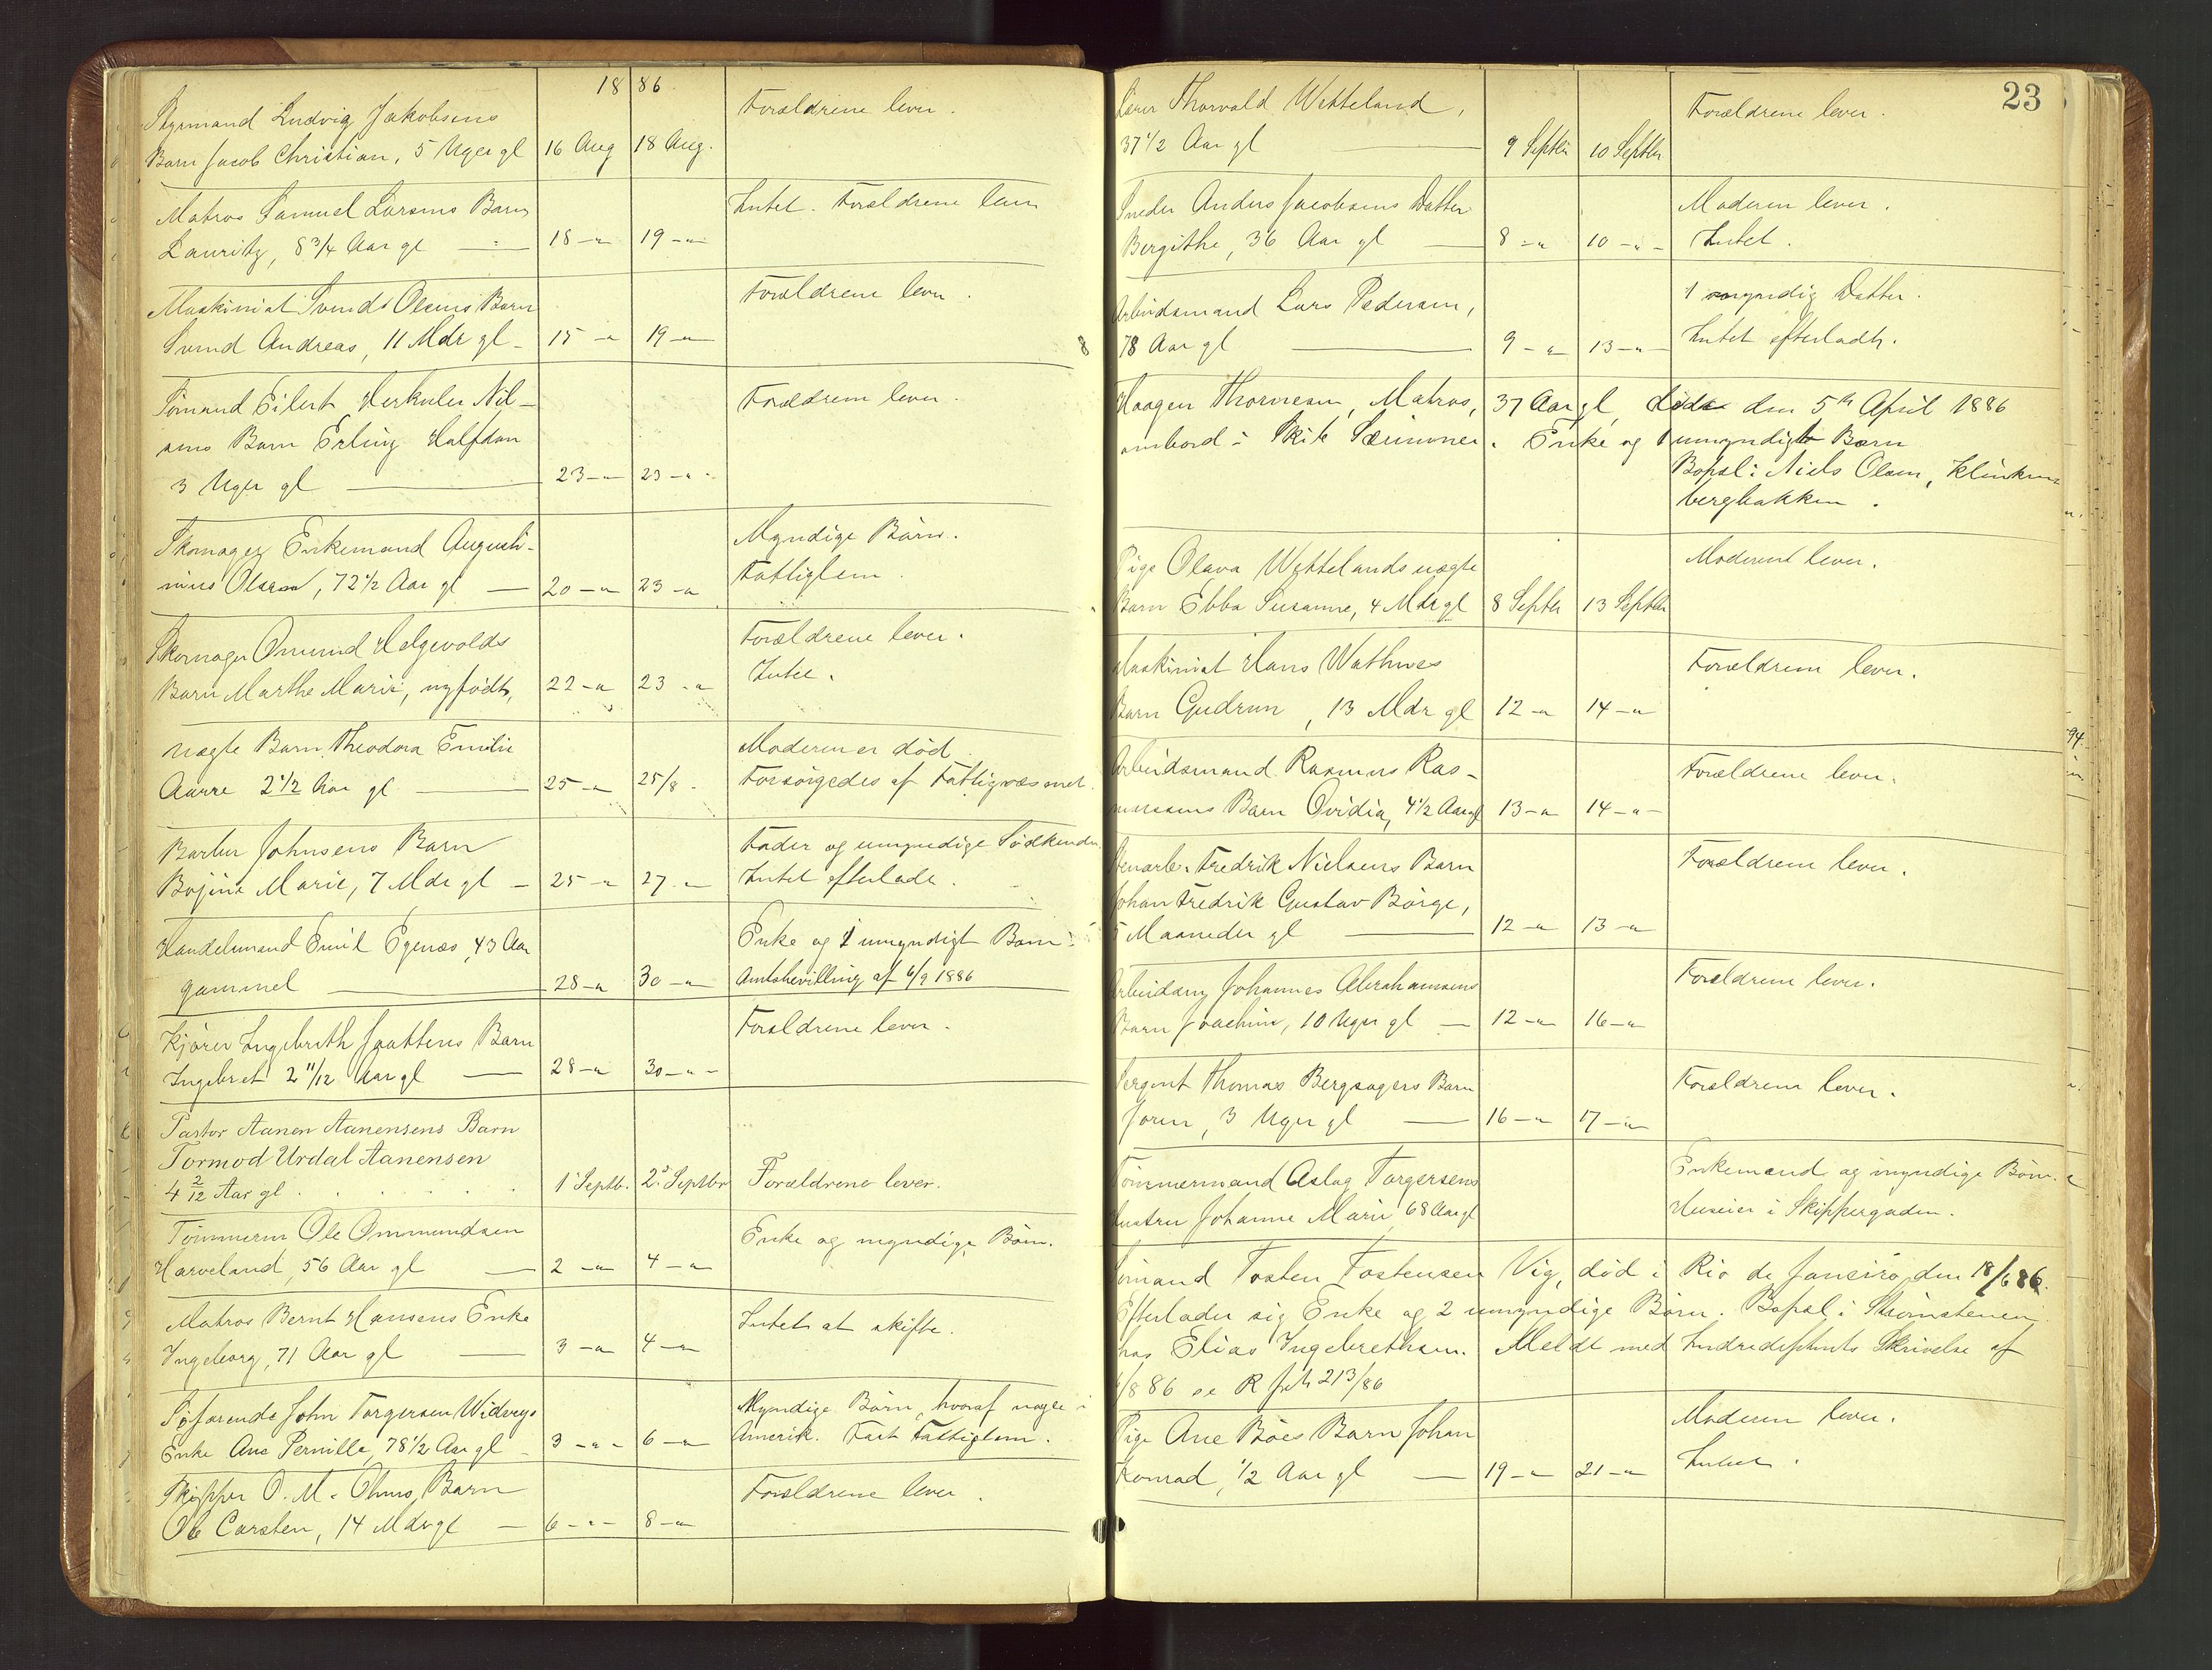 18 86
Styrmand Ludvig Jakobsens
Barn Jacob Christian, 5 Uger gl 16 Aug 18 Aug.
Forældrene lever.
Matros Samuel Larsens Barn
Lauritz, 8 3/4 Aar gl — 18 -"- 19 -"-
Intet. Forældrene lever
Maskinist Svend Olsens Barn
Svend Andreas, 11 Mdr gl - 15 -"- 19 -"-
Forældrene lever.
Sömand Eilert Herkules Nil-
sens Barn Erling Halfdan
3 Uger gl — 23 -"- 23 -"-
Forældrene lever.
Skomager Enkemand Augusti-
nius Olsen, 72 1/2 Aar gl — 20 -"- 23 -"-
Myndige Börn.
Fattiglem.
Skomager Omund Helgevolds
Barn Marthe Marie, nyfödt, 22 -"- 23 -"-
Forældrene lever.
Intet.
uægte Barn Theodora Emilie
Aarre 2 1/2 Aar gl — 25 -"- 25/8 -
Moderen er död.
Forsörgedes af Fattigvæsenet.
Barber Johnsens Barn
Bojine Marie, 7 Mdr gl - 25 -"- 27 -"-
Fader og umyndige Södskende.
Intet efterladt.
Handelsmand Emil Egenæs, 43 Aar
gammel — 28 -"- 30 -"-
Enke og 1 umyndigt Barn.
Amtsbevilling af 6/9 1886
Kjörer Ingebreth Jaattens Barn
Ingebret 2 11/12 Aar gl — 28 -"- 30 -"-
Forældrene lever.
Pastor Aanen Aanensens Barn
Tormod Urdal Aanensen
4 2/12 Aar gl. . . . . 1 Septb. 2 Septbr
Forældrene lever.
Tömmerm Ole Ommundsen
Harveland, 56 Aar gl — 2 -"- 4 -"-
Enke og myndige Börn.
Matros Bernt Hansens Enke
Ingeborg, 71 Aar gl — 3 -"- 4 -"-
Intet at skifte.
Söfarende John Torgersen Widveys
Enke Ane Pernille, 78 1/2 Aar gl - 3 -"- 6 -"-
Myndige Börn, hvoraf nogle i
Amerik. Fast Fattiglem.
Skipper O. M. Ohms Barn
Ole Carsten, 14 Mdr gl — 6 -"- 8 -"-
Forældrene lever.
23
Lærer Thorvald Wetteland,
37 1/2 Aar gl — 9 Septbr 10 Septbr
Forældrene lever.
Snedker Anders Jacobsens Datter
Bergithe, 36 Aar gl — 8 -"- 10 -"-
Moderen lever.
Intet.
Arbeidsmand Lars Pedersen,
78 Aar gl — 9 -"- 13 -"-
1 myndig Datter.
Intet efterladt.
Haagen Thorvesen, Matros, 37 Aar gl, döde den 5te April 1886
ombord i Skib Særimner. Enke og 1 umyndigt Barn
Bopæl: Niels Olsen, Klinken-
bergbakken.
Pige Olava Wettelands uægte
Barn Ebba Susanne, 4 Mdr gl 8 Septbr 13 Septbr
Moderen lever.
Maskinist Hans Wathnes
Barn Gudrun, 13 Mdr gl 12 -"- 14 -"-
Forældrene lever.
Arbeidsmand Rasmus Ras-
mussens Barn Ovidia, 4 1/2 Aar gl 13 -"- 14 -"-
Forældrene lever.
Stenarb. Fredrik Nielsens Barn
Johan Fredrik Gustav Börge,
5 Maaneder gl — 12 -"- 13 -"-
Forældrene lever.
Arbeidsm Johannes Abrahamsens
Barn Joachim, 10 Uger gl — 12 -"- 16 -"-
Forældrene lever.
Sergent Thomas Bergsagers Barn
Joren, 3 Uger gl — 16 -"- 17 -"-
Forældrene lever.
Tömmermand Aslag Torgersens
Hustru Johanne Marie, 68 Aar gl
Enkemand og myndige Börn.
Huseier i Skippergaden.
Sömand Tosten Tostensen Vig, död i Rio de Janeiro den 18/6 86.
Efterlader sig Enke og 2 umyndige Börn. Bopæl i Strömstenen
hos Elias Ingebrethsen. Meldt med Indredepthnts Skrivelse af
/8 86 se R Joh 213/86
Pige Ane Böes Barn Johan
Konrad, 1/2 Aar gl — 19 -"- 21 -"-
Moderen lever.
Intet.